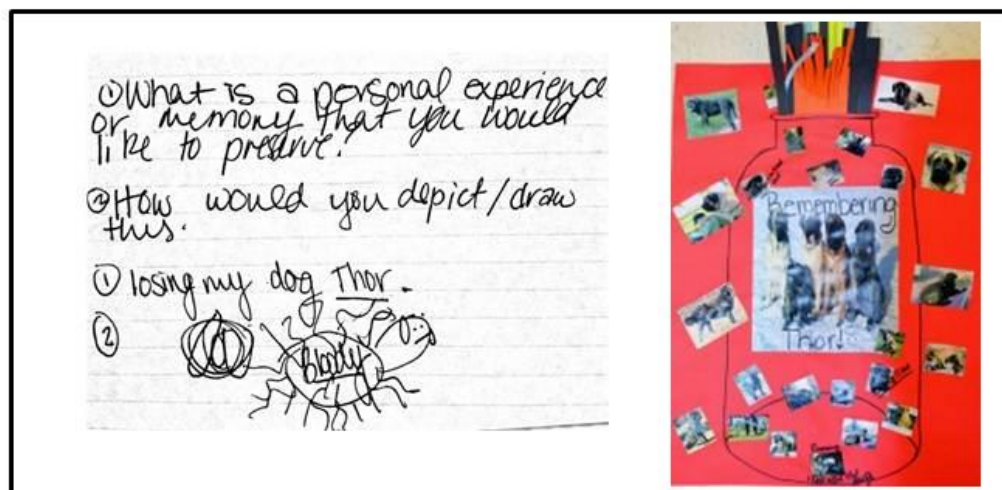 ① What is a personal experience
or memory that you would
like to preserve?
② How would you depict/draw
this.
① losing my dog Thor.
②
Bloody
Remembering
Thor!